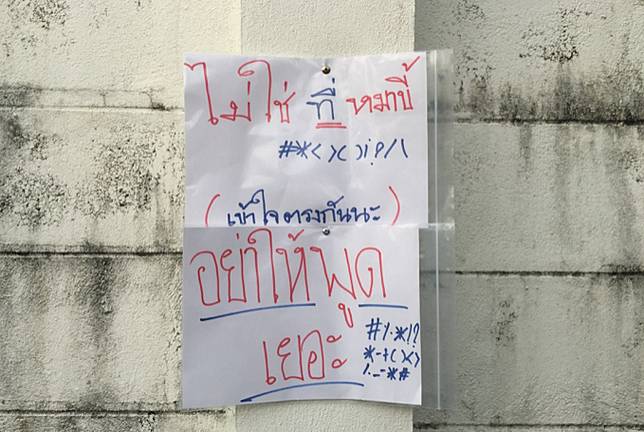 ไม่ใช่ ที่ หมาขี้
#*<>()i?/\
(เข้าใจตรงกันนะ)
อย่าให้พูด
เยอะ
#/.*!?
*-+(×>
/.-=*#